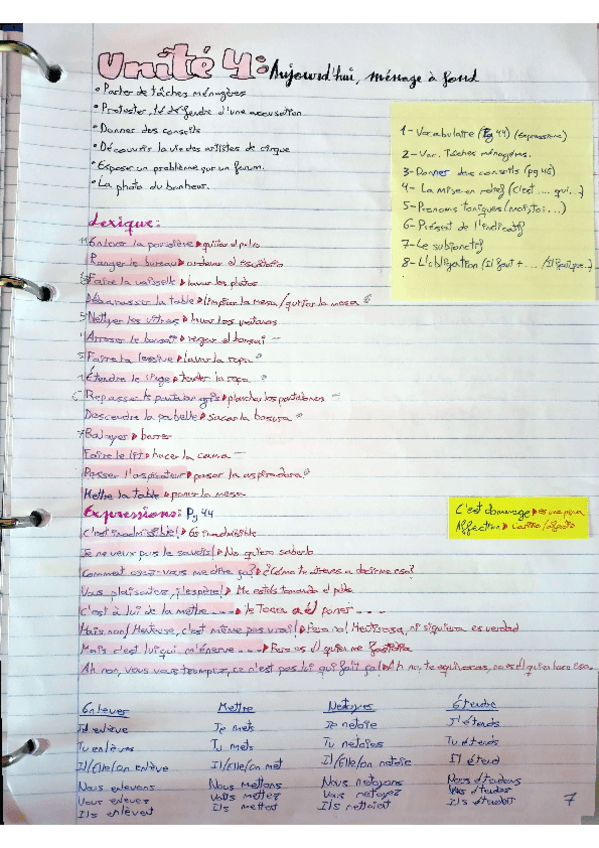 Unité 4: Aujourd'hui, ménage à fond
• Parler de tâches ménagères
• Protester, se défendre d'une accusation
• Donner des conseils
• Découvrir la vie des artistes de cirque
• Exposer un problème sur un forum.
• La photo du bonheur.
1- Vocabulaire (Pg 44) (expressions)
2- Voc. Tâches ménagères.
3- Donner des conseils (pg 46)
4- La mise en relief (C'est ... qui..)
5- Pronoms toniques (moi, toi...)
6- Présent de l'indicatif
7- Le subjonctif
8- L'obligation (Il faut + ... / Il faut que..)
Lexique:
Enlever la poussière quitar el polvo
Ranger le bureau ordenar el escritorio
Faire la vaisselle lavar los platos
Débarrasser la table limpiar la mesa/quitar la mesa
Nettoyer les vitres lavar las ventanas
Arroser le bonsaï regar el bonsai
Faire la lessive lavar la ropa
Étendre le linge tender la ropa
Repasser le pantalon gris planchar los pantalones
Descendre la poubelle sacar la basura
Balayer barrer
Faire le lit hacer la cama
Passer l'aspirateur pasar la aspiradora
Mettre la table poner la mesa
Expressions: Pg 44
C'est dommage es una pena
Affection cariño/afecto
C'est inadmissible! Es inadmisible
Je ne veux pas le savoir! No quiero saberlo
Comment osez-vous me dire ça? ¿Cómo te atreves a decirme eso?
Vous plaisantez, j'espère! Me estás tomando el pelo
C'est à lui de la mettre --- le Toca a él poner ---
Mais non! Menteuse, c'est même pas vrai! Pero no! Mentirosa, ni siquiera es verdad
Mais c'est lui qui m'énerve --- Pero es él quien me fastidia
Ah non, vous vous trompez, ce n'est pas lui qui fait ça! Ah no, te equivocas, no es él quien hace eso.
Enlever Mettre Netoyer Étendre
J'enlève Je mets Je netoie J'étends
Tu enlèves Tu mets Tu netoies Tu étends
Il/Elle/on enlève Il/Elle/on met Il/Elle/on netoie Il étend
Nous enlevons Nous mettons Nous netoyons Nous étendons
Vous enlevez Vous mettez Vous netoyez Vous étendez
Ils enlèvent Ils mettent
7